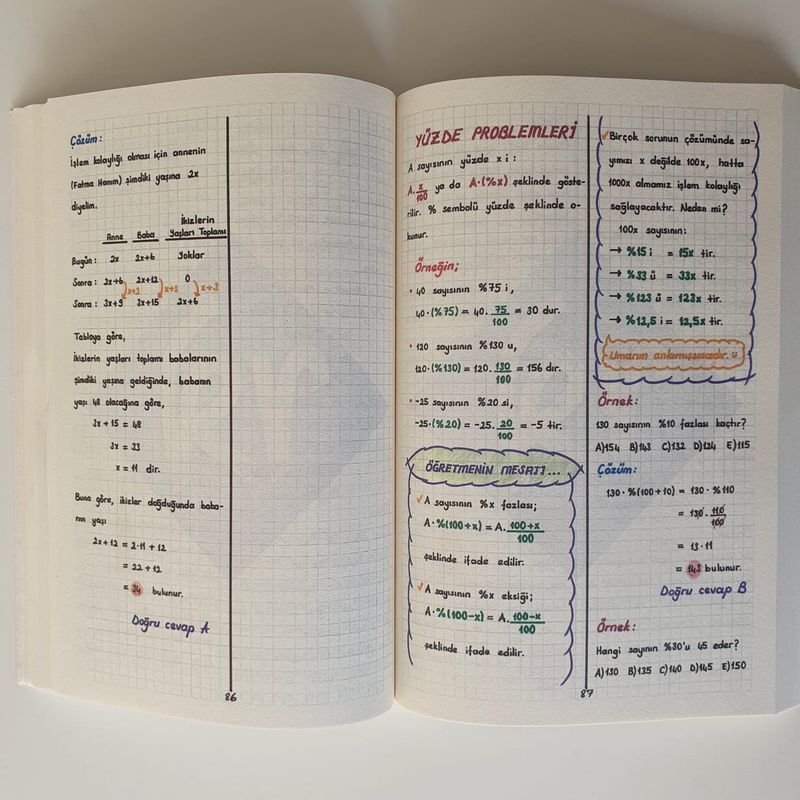 Çözüm:
İşlem kolaylığı olması için annenin
(Fatma Hanım) şimdiki yaşına 2x
diyelim.
Anne Baba İkizlerin Yaşları Toplamı
Bugün: 2x 2x+6 Yoklar
Sonra: 2x+6 2x+12 0
x+3 x+3 x+3
Sonra: 3x+9 3x+15 2x+6
Tabloya göre,
İkizlerin yaşları toplamı babalarının
şimdiki yaşına geldiğinde, babanın
yaşı 48 olacağına göre,
3x + 15 = 48
3x = 33
x = 11 dir.
Buna göre, ikizler doğduğunda baba-
nın yaşı
2x + 12 = 2·11 + 12
= 22 + 12
= 34 bulunur.
Doğru cevap A
86
YÜZDE PROBLEMLERİ
A sayısının yüzde x i:
A·x/100 ya da A·(%x) şeklinde göste-
rilir. % sembolü yüzde şeklinde o-
kunur.
Örneğin;
• 40 sayısının %75 i,
40·(%75) = 40·75/100 = 30 dur.
• 120 sayısının %130 u,
120·(%130) = 120·130/100 = 156 dır.
• -25 sayısının %20 si,
-25·(%20) = -25·20/100 = -5 tir.
ÖĞRETMENİN MESAJI...
✓ A sayısının %x fazlası;
A·%(100+x) = A·100+x/100
şeklinde ifade edilir.
✓ A sayısının %x eksiği;
A·%(100-x) = A·100-x/100
şeklinde ifade edilir.
✓ Birçok sorunun çözümünde sa-
yımızı x değilde 100x, hatta
1000x almamız işlem kolaylığı
sağlayacaktır. Neden mi?
100x sayısının:
→ %15 i = 15x tir.
→ %33 ü = 33x tir.
→ %123 ü = 123x tir.
→ %12,5 i = 12,5x tir.
Umarım anlamışsınızdır. ü
Örnek:
130 sayısının %10 fazlası kaçtır?
A)154 B)143 C)132 D)124 E)115
Çözüm:
130·%(100+10) = 130·%110
= 130·110/100
= 13·11
= 143 bulunur.
Doğru cevap B
Örnek:
Hangi sayının %30'u 45 eder?
A)130 B)135 C)140 D)145 E)150
87